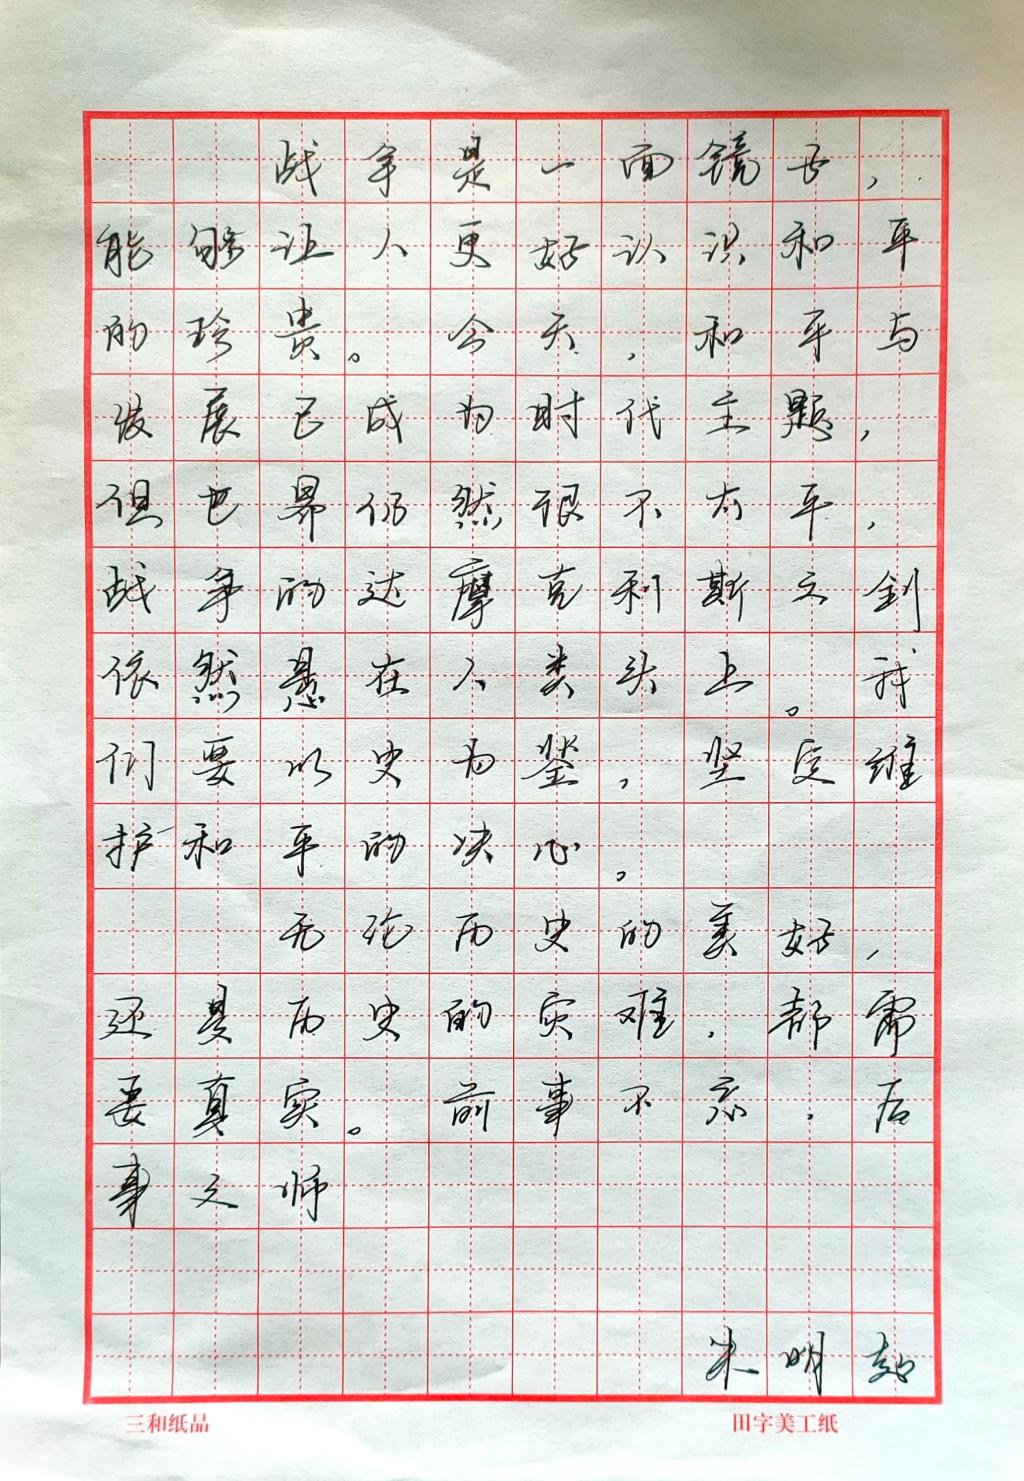 战争是一面镜子，
能够让人更好认识和平
的珍贵。今天，和平与
发展已成为时代主题，
但世界仍然很不太平，
战争的达摩克利斯之剑
依然悬在人类头上。我
们要以史为鉴，坚定维
护和平的决心。
无论历史的美好，
还是历史的灾难，都需
要真实。前事不忘，后
事之师
朱明
三和纸品
田字美工纸